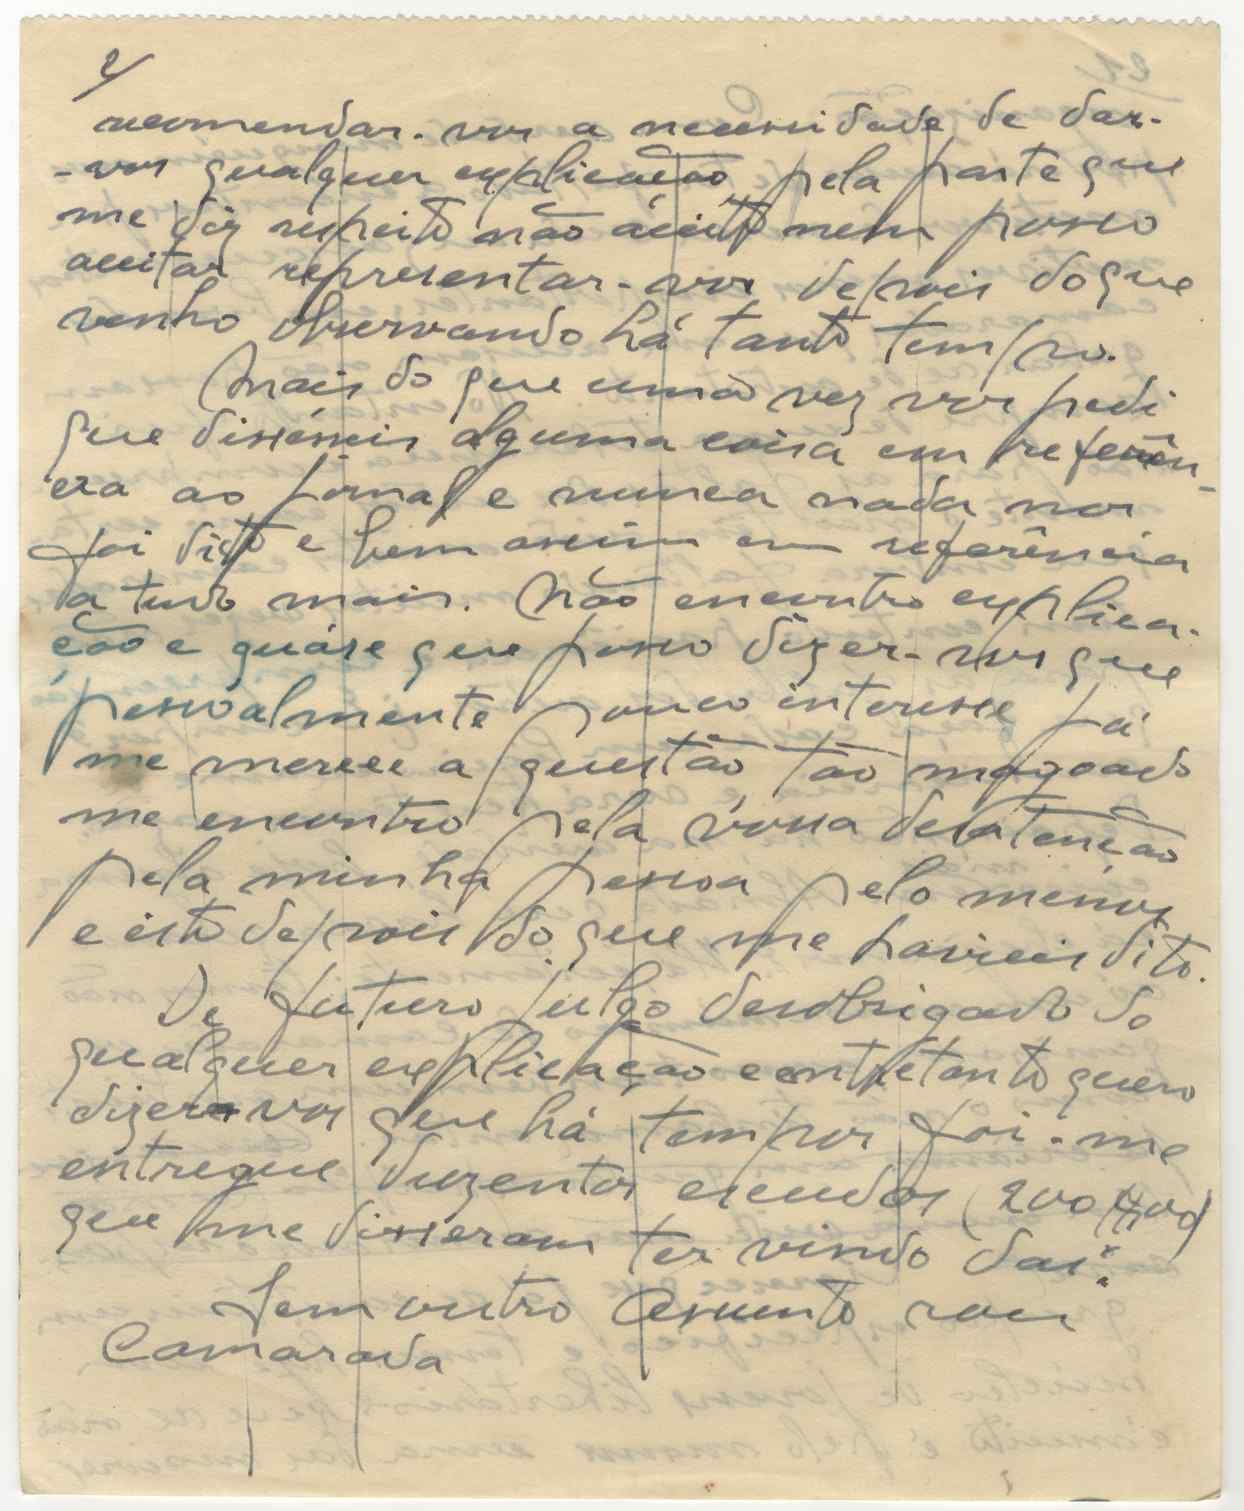 2/
recomendar-vos a necessidade de dar-
-vos qualquer explicação, pela parte que
me diz respeito não aceito nem posso
aceitar representar-vos depois do que
venho observando há tanto tempo.
Mais do que uma vez vos pedi
que dissésseis alguma coisa em referên-
cia ao jornal e nunca nada nos
foi dito e bem assim em referência
a tudo mais. Não encontro explica-
ção e quáse que posso dizer-vos que
pessoalmente pouco interesse já
me merece a questão, tão magoado
me encontro pela vossa desatenção
pela minha pessoa pelo menos
e isto depois do que me havieis dito.
De futuro julgo desobrigado do
qualquer explicação e entretanto quero
dizer-vos que há tempos foi-me
entregue duzentos escudos (200$00)
que me disseram ter vindo daí.
Sem outro assunto sou
Camarada